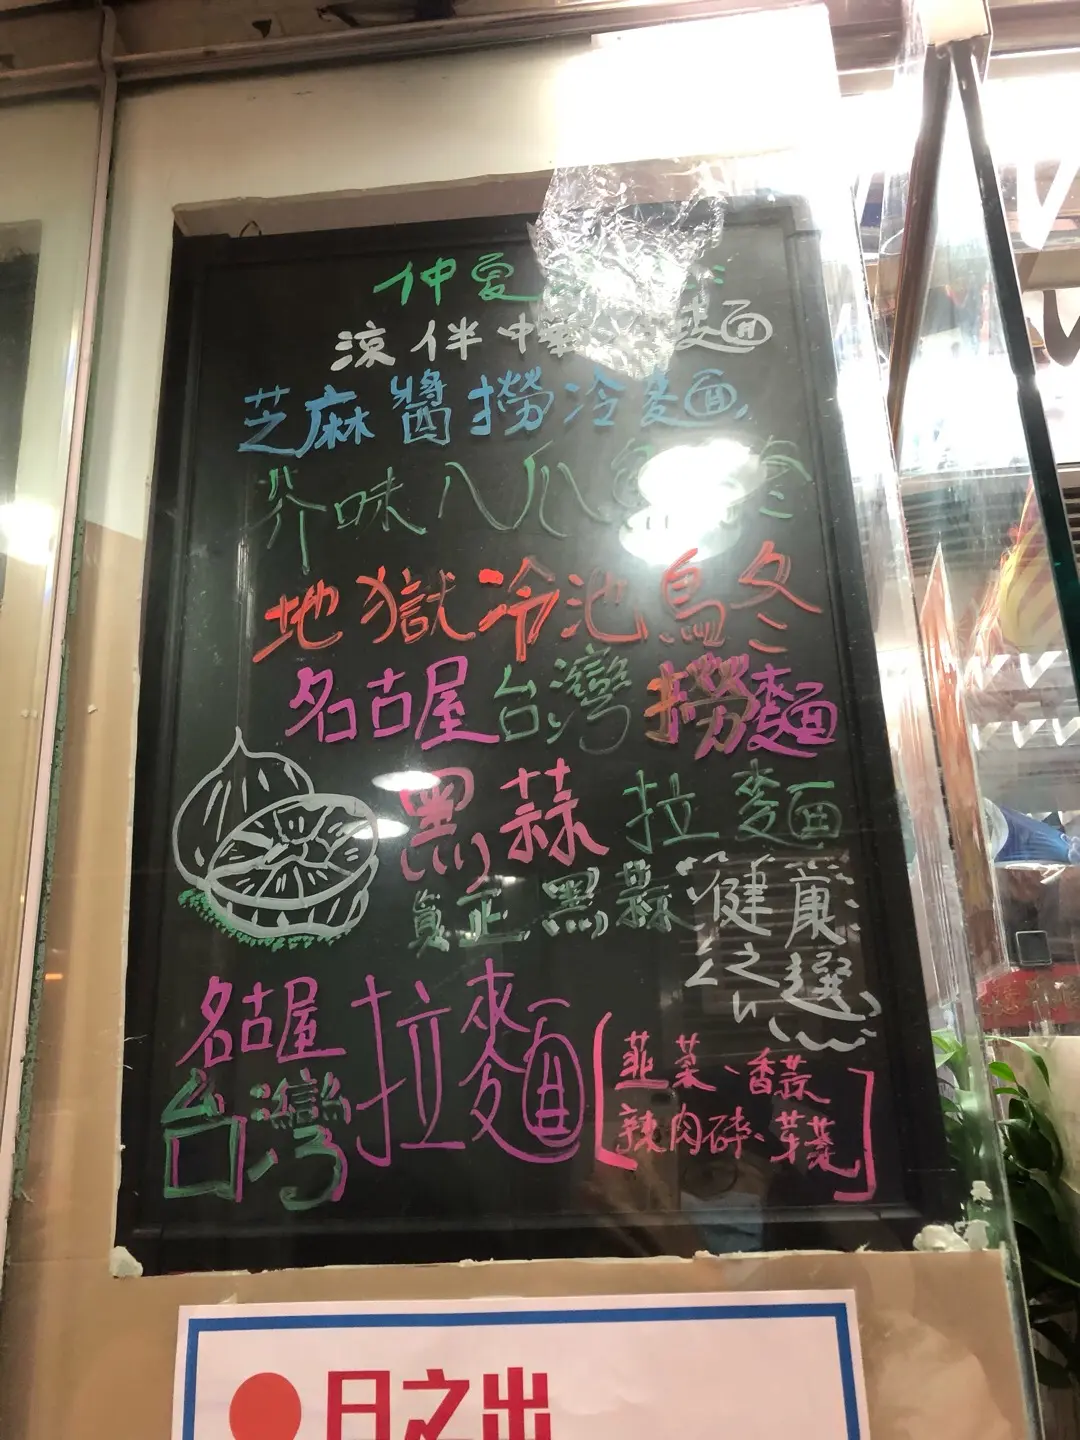 仲夏
涼伴中華 麵
芝麻醬撈冷麵
芥味八爪
地獄冷池烏冬
名古屋台灣撈麵
黑蒜拉麵
真正黑蒜健康之選
名古屋台灣拉麵
韮菜、香蒜
辣肉碎、芽菜
日之出